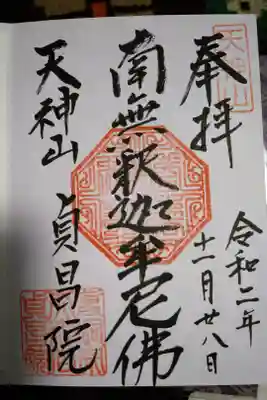 奉拝
天神山
令和二年
十一月廿八日
南無釈迦牟尼佛
天神山 貞昌院